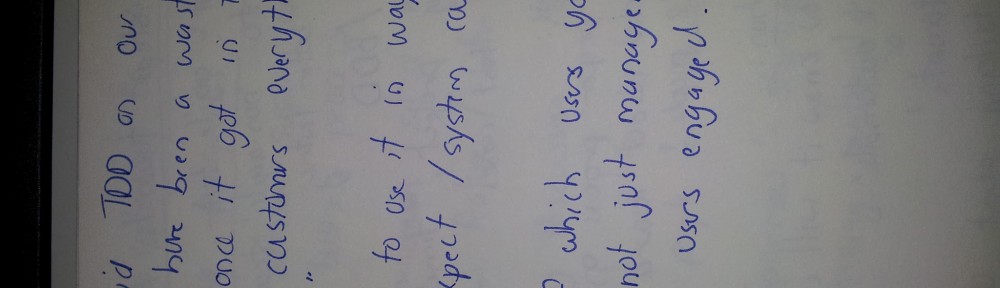 id TDD on our
have been a wast
once it got in
customers everyth
"
to use it in way
pect / system ca
which users yo
not just manage
users engaged.